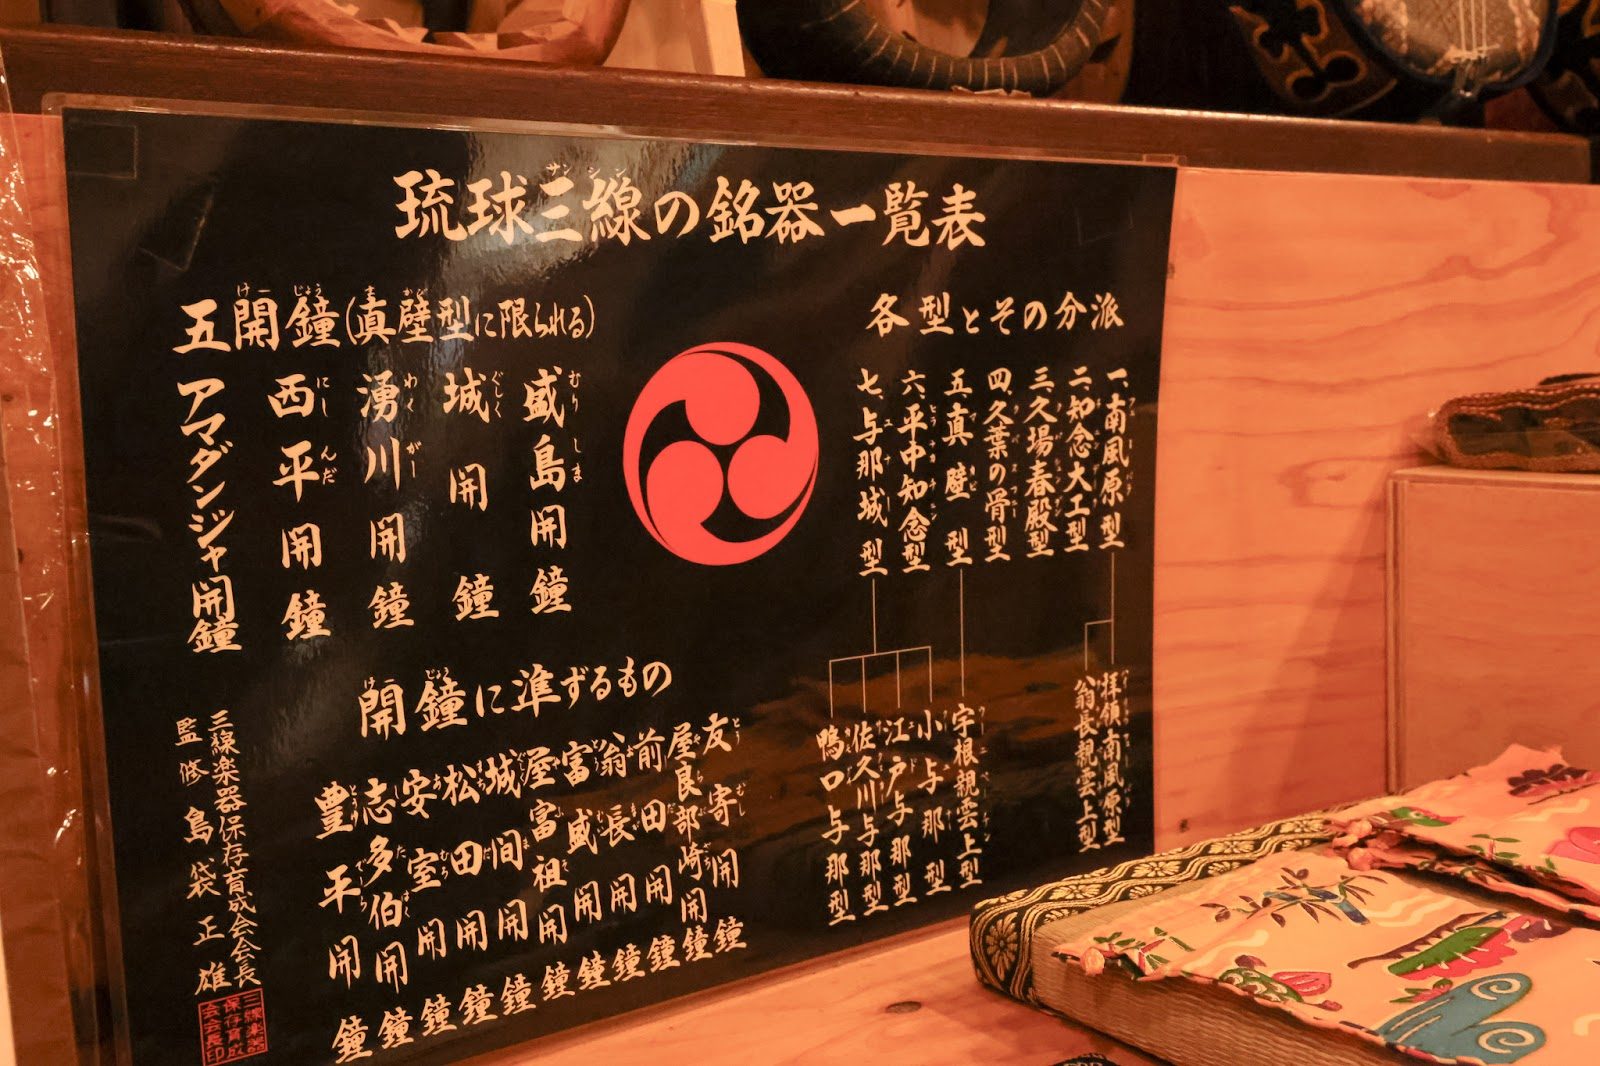 琉球三線の銘器一覧表
各型とその分派
一、南風原型
二、知念大工型
三、久場春殿型
四、久葉の骨型
五、真壁型
六、平中知念型
七、与那城型
拝領南風原型
翁長親雲上型
宇根親雲上型
小与那型
江戸与那型
佐久川与那型
鴨口与那型
五開鐘(真壁型に限られる)
盛島開鐘
城開鐘
湧川開鐘
西平開鐘
アマダンジャ開鐘
開鐘に準ずるもの
友寄開鐘
屋良部崎開鐘
前田開鐘
翁長開鐘
富盛開鐘
屋富祖開鐘
城間開鐘
松田開鐘
安室開鐘
志多伯開鐘
豊平開鐘
三線楽器保存育成会会長
監修 島袋正雄
三線楽器
保存育成
会会長印